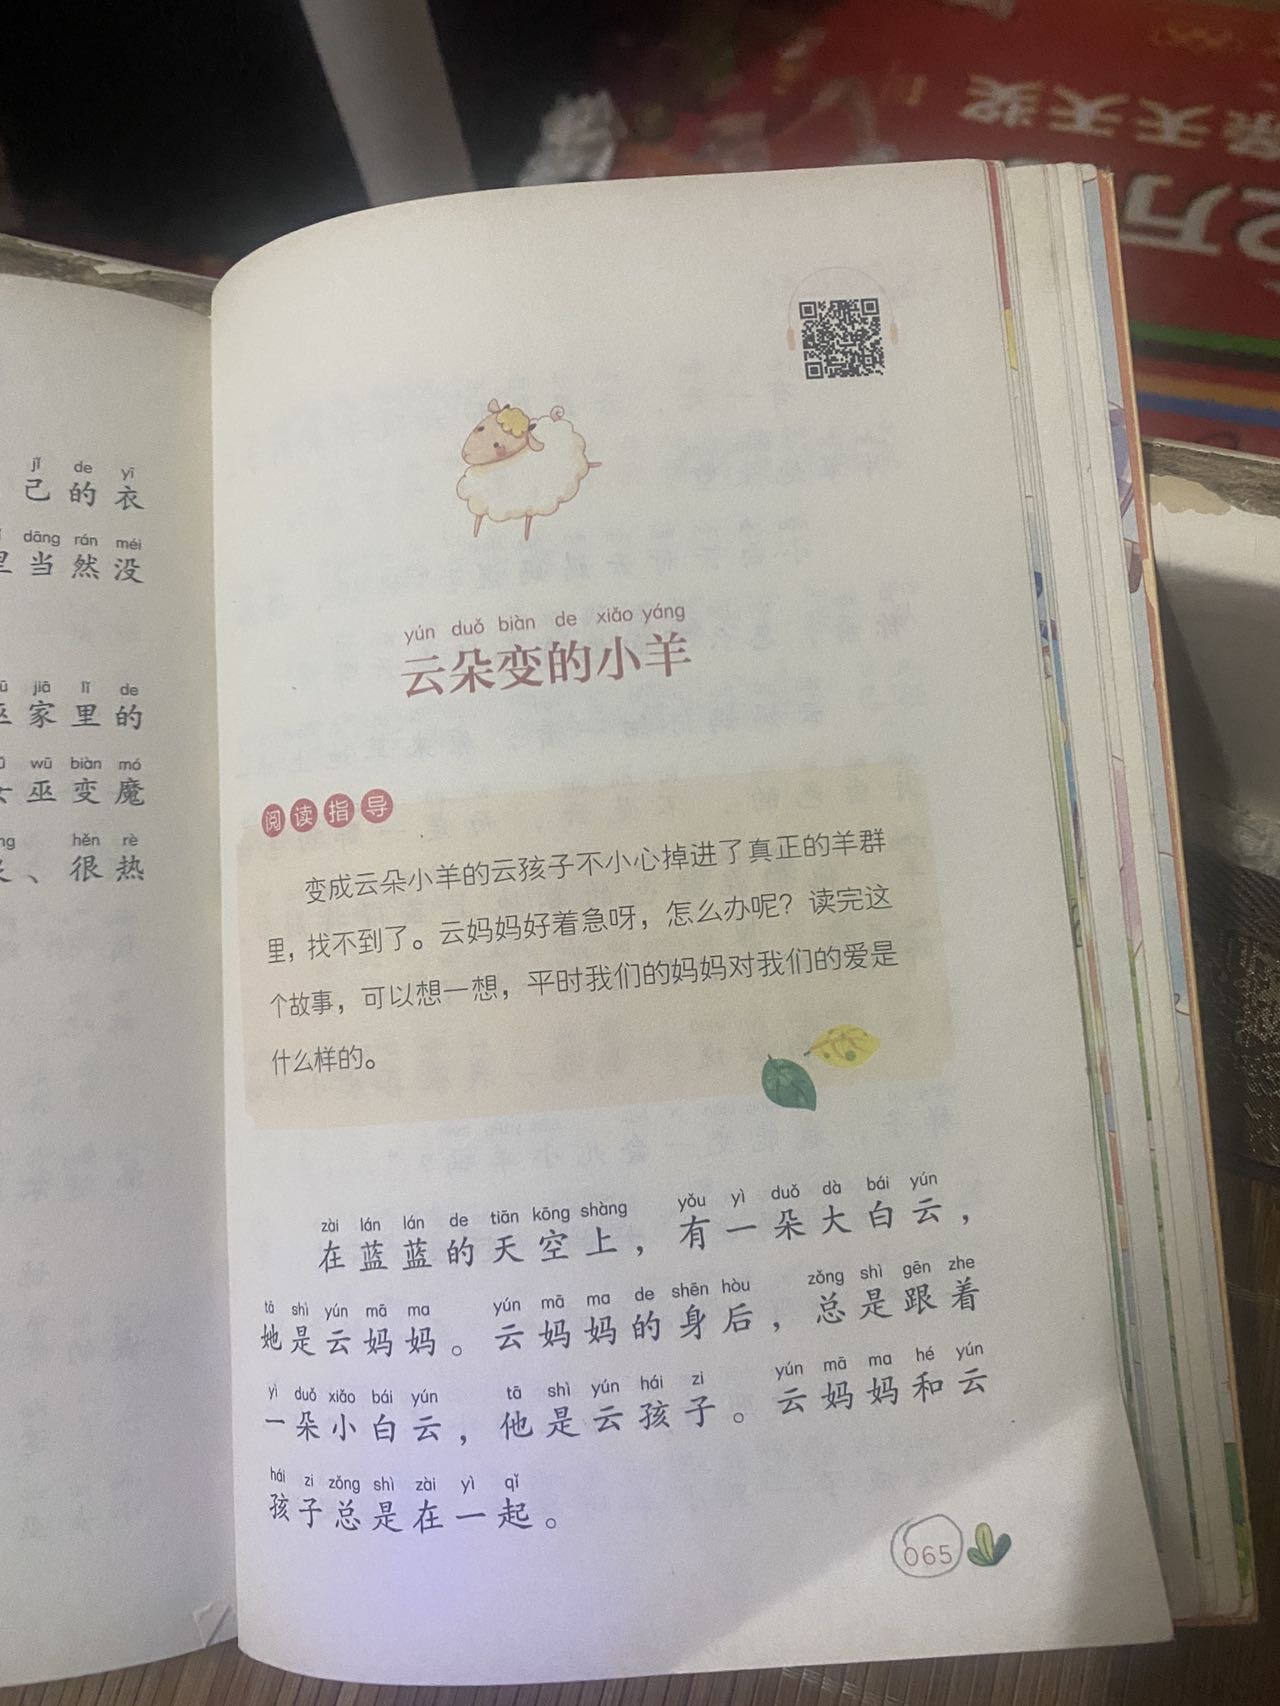 jǐ de yī
己 的 衣
dāng rán méi
当 然 没
jiā lǐ de
家 里 的
wū biàn mó
巫 变 魔
hěn rè
、 很 热
yún duǒ biàn de xiǎo yáng
云朵变的小羊
阅读指导
变成云朵小羊的云孩子不小心掉进了真正的羊群
里，找不到了。云妈妈好着急呀，怎么办呢？读完这
个故事，可以想一想，平时我们的妈妈对我们的爱是
什么样的。
zài lán lán de tiān kōng shàng yǒu yì duǒ dà bái yún
在 蓝 蓝 的 天 空 上 ， 有 一 朵 大 白 云 ，
tā shì yún mā ma yún mā ma de shēn hòu zǒng shì gēn zhe
她 是 云 妈 妈 。 云 妈 妈 的 身 后 ， 总 是 跟 着
yì duǒ xiǎo bái yún tā shì yún hái zi yún mā ma hé yún
一 朵 小 白 云 ， 他 是 云 孩 子 。 云 妈 妈 和 云
hái zi zǒng shì zài yì qǐ
孩 子 总 是 在 一 起 。
065
天天奖
2万